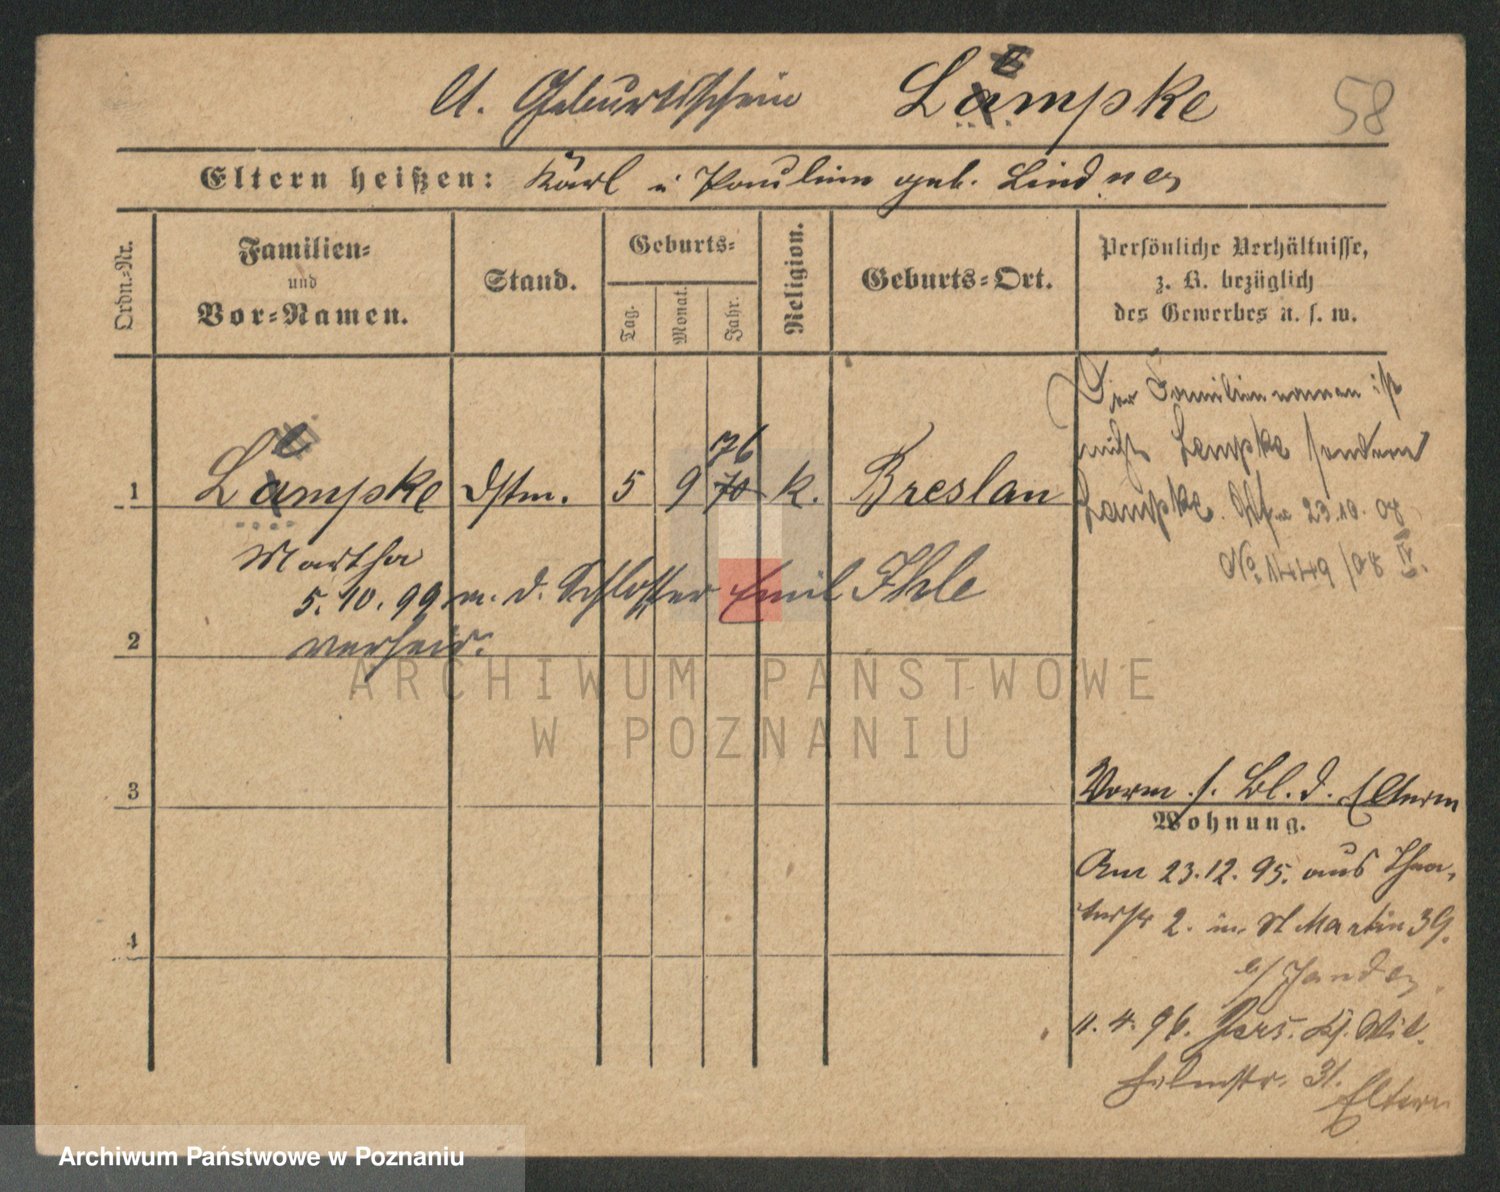 Geburtsschein Lämpke 58
Eltern heißen: Karl u Pauline geb. Lindner
Ordn.-Nr.
Familien-
und
Vor-Namen.
Stand.
Geburts-
Tag.
Monat.
Jahr.
Religion.
Geburts-Ort.
Persönliche Verhältnisse,
z. B. bezüglich
des Gewerbes u. s. w.
Der Familiennamen ist
nicht Lempke sondern
Lampke. 23.10.08
No. 1449/08 IV.
76
1 Lämpke Dstm. 5 9 70 k. Breslau
Martha
5.10.99 m. d. Schlosser Emil Ihle
verheir.
2
3
4
Vorm. s. Bl. d. Eltern
Wohnung.
Am 23.12.95. aus Thea-
terstr 2. in St Martin 39.
b/
11.4.96. Jers. Wil-
helmstr. 31.
Eltern
ARCHIWUM PAŃSTWOWE
W POZNANIU
Archiwum Państwowe w Poznaniu